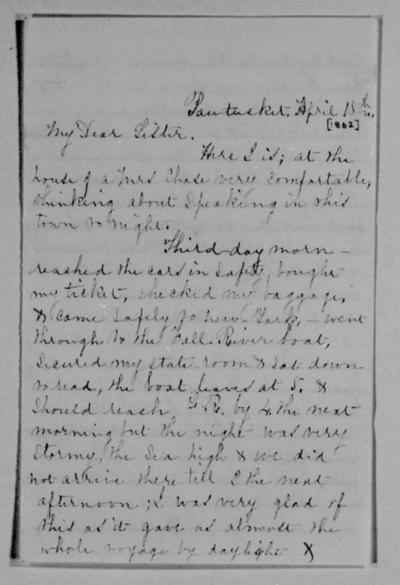 Pawtucket, April 18th
[1862]
My Dear Sister.
Here I is; at the
house of a Mrs Chase very comfortable,
thinking about speaking in this
town to night.
Third day morn -
reached the cars in safety, bought
my ticket, checked my baggage,
& came safely to New York, - went
through to the Fall River boat,
secured my state room & sat down
to read, the boat leaves at 5. &
should reach F. R. by 4 the next
morning but the night was very
stormy, the sea high & we did
not arrive there till 2 the next
afternoon; I was very glad of
this as it gave us almost the
whole voyage by daylight &